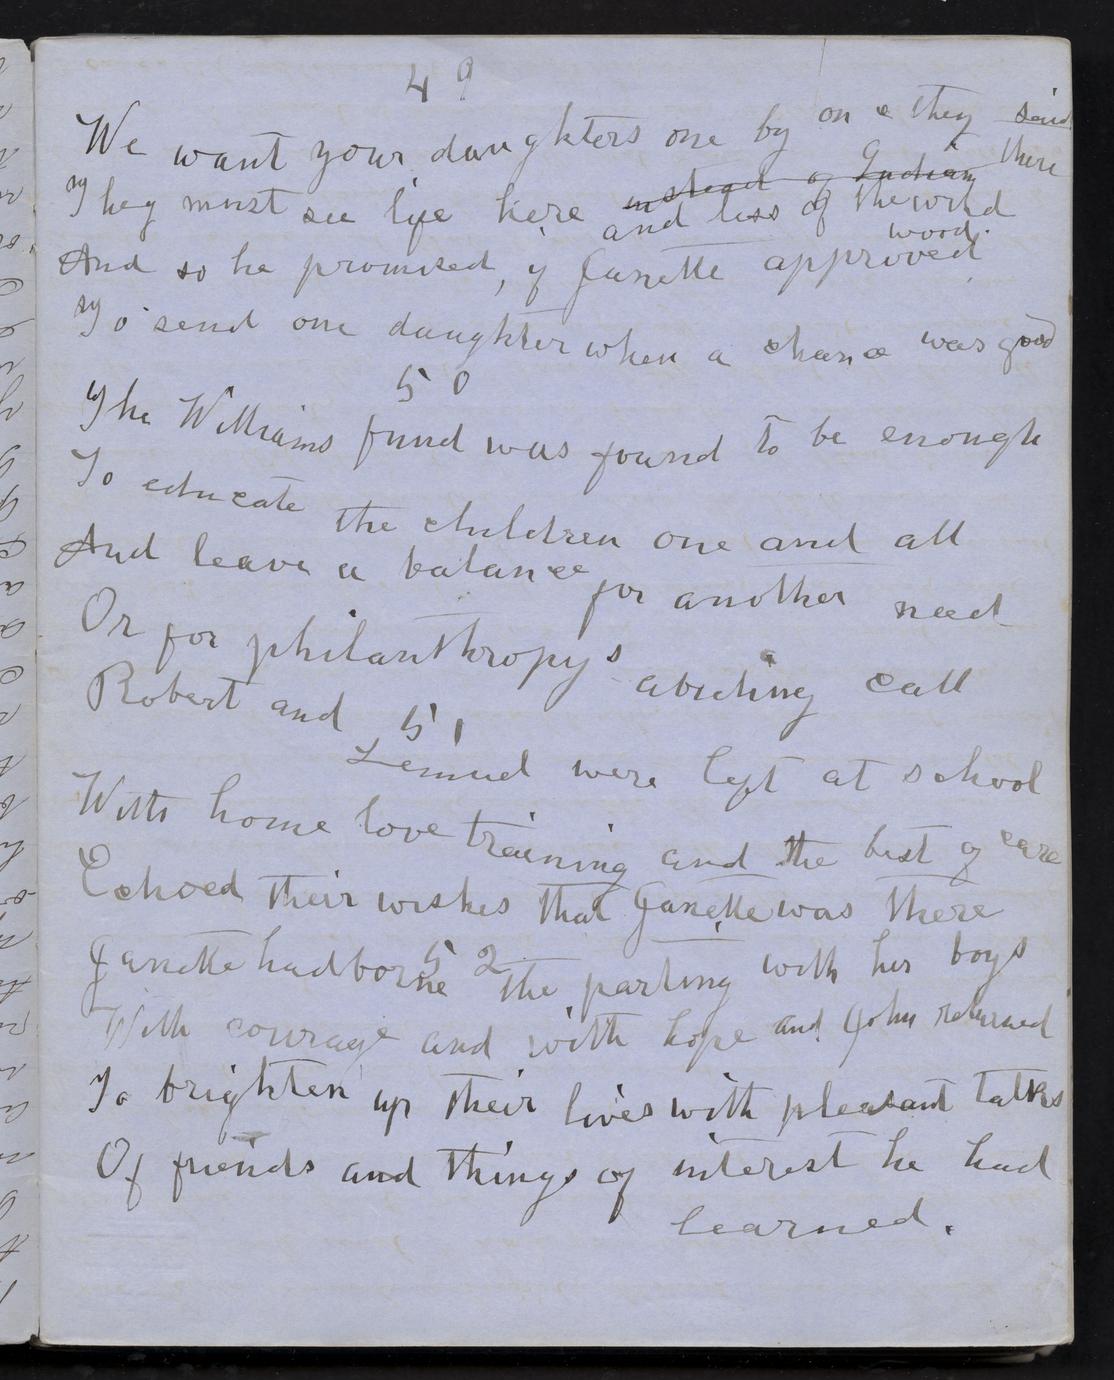 49
We want your daughters one by one they said
They must see life here instead of Indian there
and less of the wild wood.
And so he promised, if Janette approved,
To send one daughter when a chance was good
50
The Williams fund was found to be enough
To educate the children one and all
And leave a balance for another need
Or for philanthropys abiding call
51
Robert and Lemuel were left at school
With home love training and the best of care
Echoed their wishes that Janette was there
52
Janette had borne the parting with her boys
With courage and with hope and John returned
To brighten up their lives with pleasant talks
Of friends and things of interest he had
learned.